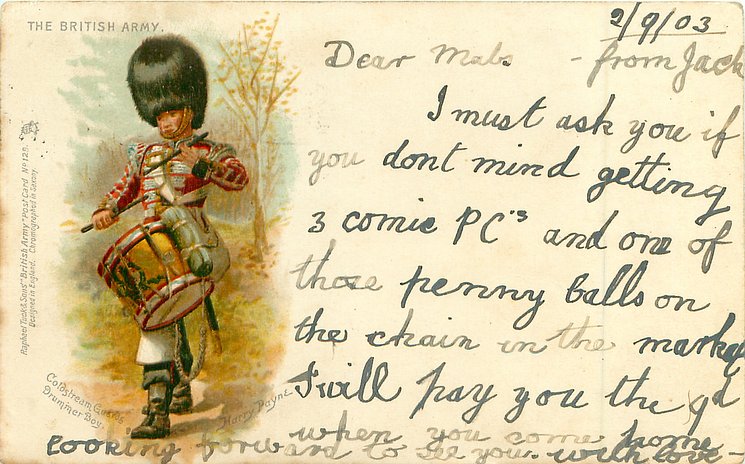 THE BRITISH ARMY.
2/9/03
Dear Mabs - from Jack
I must ask you if
you dont mind getting
3 comic PC's and one of
those penny balls on
the chain in the market
I will pay you the 9d
when you come home
looking forward to see you. with love -
Raphael Tuck & Sons' "British Army" Post Card No 125.
Designed in England. Chromographed in Saxony.
Coldstream Guards
Drummer Boy.
Harry Payne